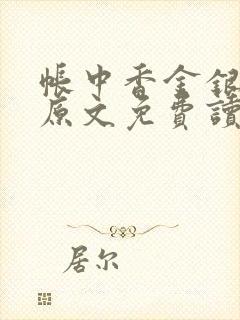 帳中香金銀
原文免費讀
居尔